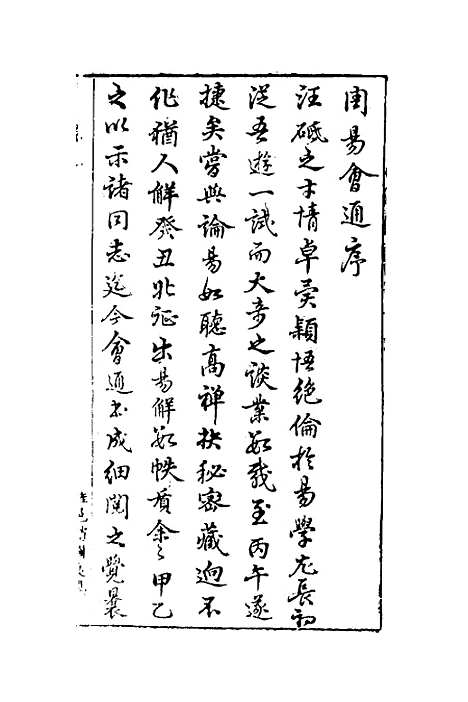 周易會通序
汪砥之才情卓犖穎悟絕倫於易學尤長初
從吾遊一試而大奇之談業數載至丙午遂
捷矣嘗與論易如聽高禪抉秘密藏迥不
作猶人解癸丑北征出易解數帙質余甲乙
之以示諸同志迄今會通書成細閱之覺曩